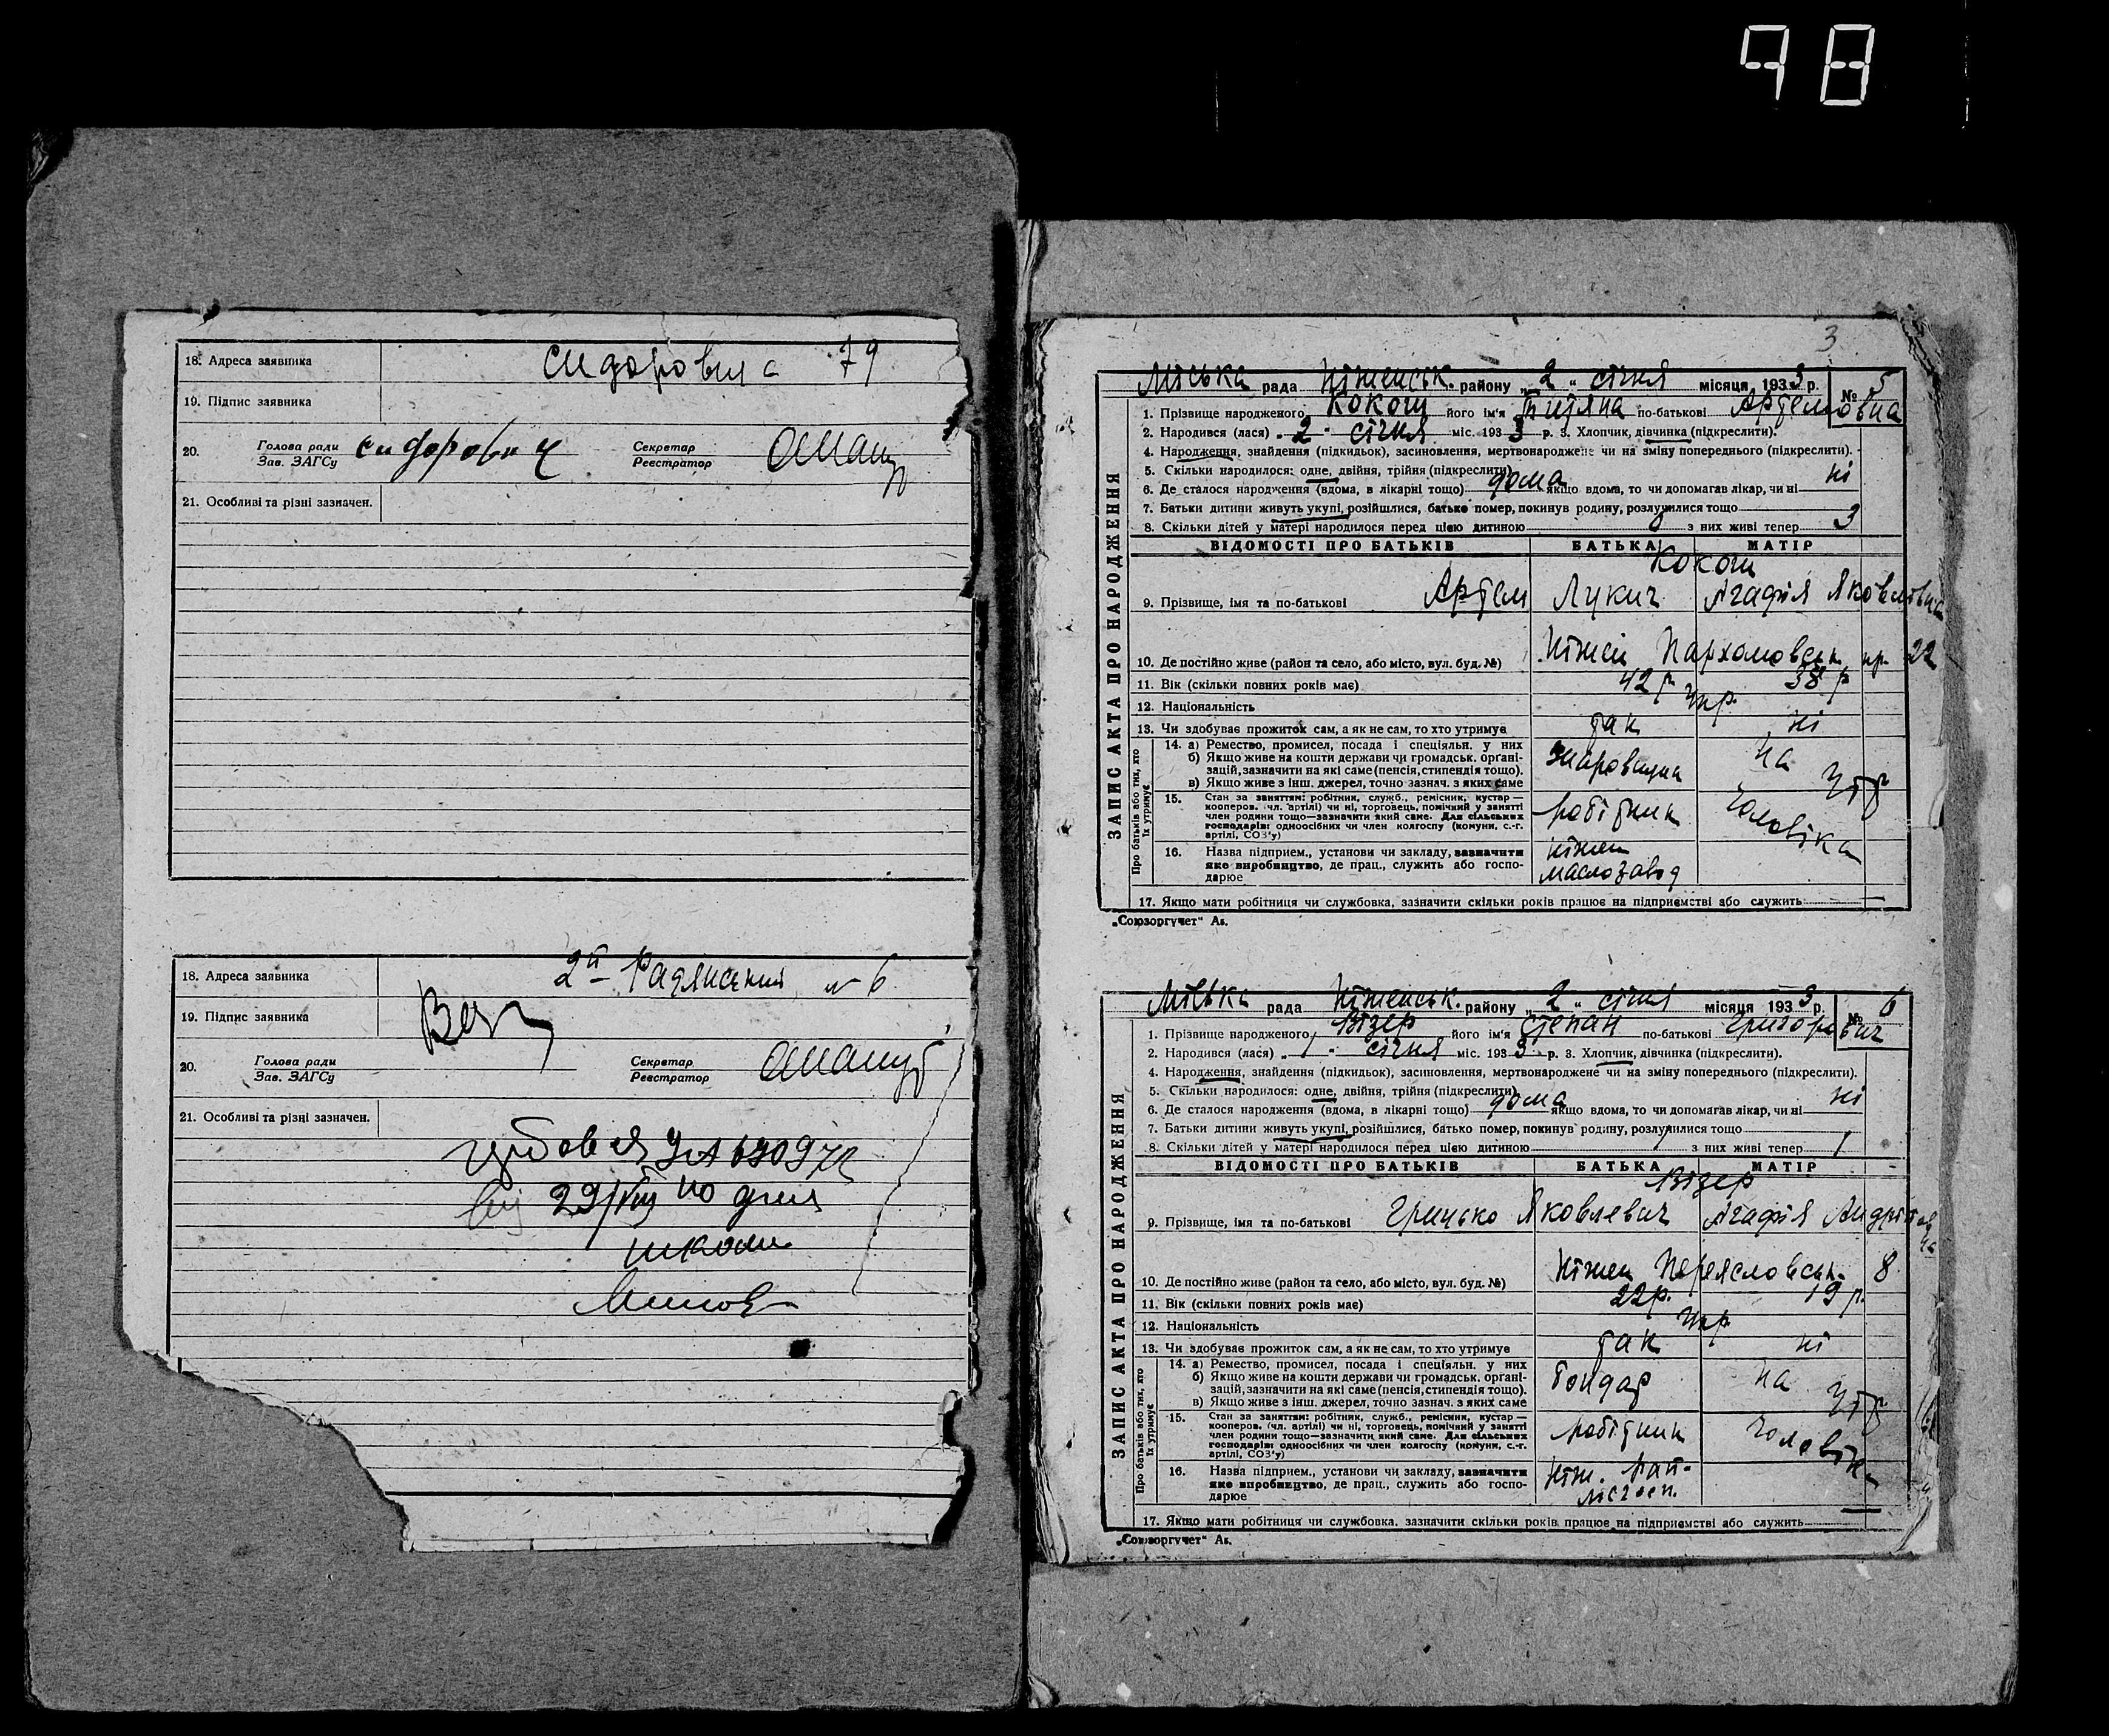 98
18. Адреса заявника Сидоровил с 79
19. Підпис заявника
20. Голова ради Зав. ЗАГСу Сидорович Секретар Реєстратор
21. Особливі та різні зазначен.
18. Адреса заявника 2й Радянський № 6
19. Підпис заявника
20. Голова ради Зав. ЗАГСу Секретар Реєстратор
21. Особливі та різні зазначен.
29/VIII по для
школи
3
ЗАПИС АКТА ПРО НАРОДЖЕННЯ
Міська рада Ніженськ. району „2“ січня місяця 1933 р. № 5
1. Прізвище народженого Кокош його ім'я Титяна по-батькові Артемовна
2. Народився (лася) „2“ січня міс. 1933 р. 3. Хлопчик, дівчинка (підкреслити).
4. Народження, знайдення (підкидьок), засиновлення, мертвонароджене чи на зміну попереднього (підкреслити).
5. Скільки народилося: одне, двійня, трійня (підкреслити)
6. Де сталося народження (вдома, в лікарні тощо) дома якщо вдома, то чи допомагав лікар, чи ні ні
7. Батьки дитини живуть укупі, розійшлися, батько помер, покинув родину, розлучилися тощо
8. Скільки дітей у матері народилося перед цією дитиною 6 з них живі тепер 3
ВІДОМОСТІ ПРО БАТЬКІВ БАТЬКА МАТІР
Кокош
9. Прізвище, імя та по-батькові Артем Лукич Агафія Яковлевна
10. Де постійно живе (район та село, або місто, вул. буд. №) Ніжен Пархомовськ пр. 22
11. Вік (скільки повних років має) 42 р. 38 р.
12. Національність Укр.
13. Чи здобуває прожиток сам, а як не сам, то хто утримує так ні
Про батьків або тих, хто їх утримує
14. а) Ремество, промисел, посада і спеціяльн. у них
б) Якщо живе на кошти держави чи громадськ. організацій, зазначити на які саме (пенсія, стипендія тощо).
в) Якщо живе з інш. джерел, точно зазнач. з яких саме
на утр
15. Стан за заняттям: робітник, служб., ремісник, кустар —
кооперов. (чл. артілі) чи ні, торговець, помічний у занятті
член родини тощо—зазначити який саме. Для сільських
господарів: одноосібних чи член колгоспу (комуни, с.-г.
артілі, СОЗ'у)
робітник чоловіка
16. Назва підприєм., установи чи закладу, зазначити
яке виробництво, де прац., служить або госпо-
дарює
Ніжен маслозавод
17. Якщо мати робітниця чи службовка, зазначити скільки років працює на підприємстві або служить
„Союзоргучет“ Ав.
ЗАПИС АКТА ПРО НАРОДЖЕННЯ
Міська рада Ніженськ. району „2“ січня місяця 1933 р. № 6
1. Прізвище народженого Візер його ім'я Степан по-батькові Григорович
2. Народився (лася) „1“ січня міс. 1933 р. 3. Хлопчик, дівчинка (підкреслити).
4. Народження, знайдення (підкидьок), засиновлення, мертвонароджене чи на зміну попереднього (підкреслити).
5. Скільки народилося: одне, двійня, трійня (підкреслити)
6. Де сталося народження (вдома, в лікарні тощо) дома якщо вдома, то чи допомагав лікар, чи ні ні
7. Батьки дитини живуть укупі, розійшлися, батько помер, покинув родину, розлучилися тощо
8. Скільки дітей у матері народилося перед цією дитиною 1 з них живі тепер 1
ВІДОМОСТІ ПРО БАТЬКІВ БАТЬКА МАТІР
Візер
9. Прізвище, імя та по-батькові Грицько Яковлевич Агафія Андріївна
10. Де постійно живе (район та село, або місто, вул. буд. №) Ніжен Переясловськ. 8
11. Вік (скільки повних років має) 22 р. 19 р.
12. Національність Укр.
13. Чи здобуває прожиток сам, а як не сам, то хто утримує так ні
Про батьків або тих, хто їх утримує
14. а) Ремество, промисел, посада і спеціяльн. у них
б) Якщо живе на кошти держави чи громадськ. організацій, зазначити на які саме (пенсія, стипендія тощо).
в) Якщо живе з інш. джерел, точно зазнач. з яких саме
бондар на утр
15. Стан за заняттям: робітник, служб., ремісник, кустар —
кооперов. (чл. артілі) чи ні, торговець, помічний у занятті
член родини тощо—зазначити який саме. Для сільських
господарів: одноосібних чи член колгоспу (комуни, с.-г.
артілі, СОЗ'у)
робітник чоловік
16. Назва підприєм., установи чи закладу, зазначити
яке виробництво, де прац., служить або госпо-
дарює
Ніж.
17. Якщо мати робітниця чи службовка, зазначити скільки років працює на підприємстві або служить
„Союзоргучет“ Ав.